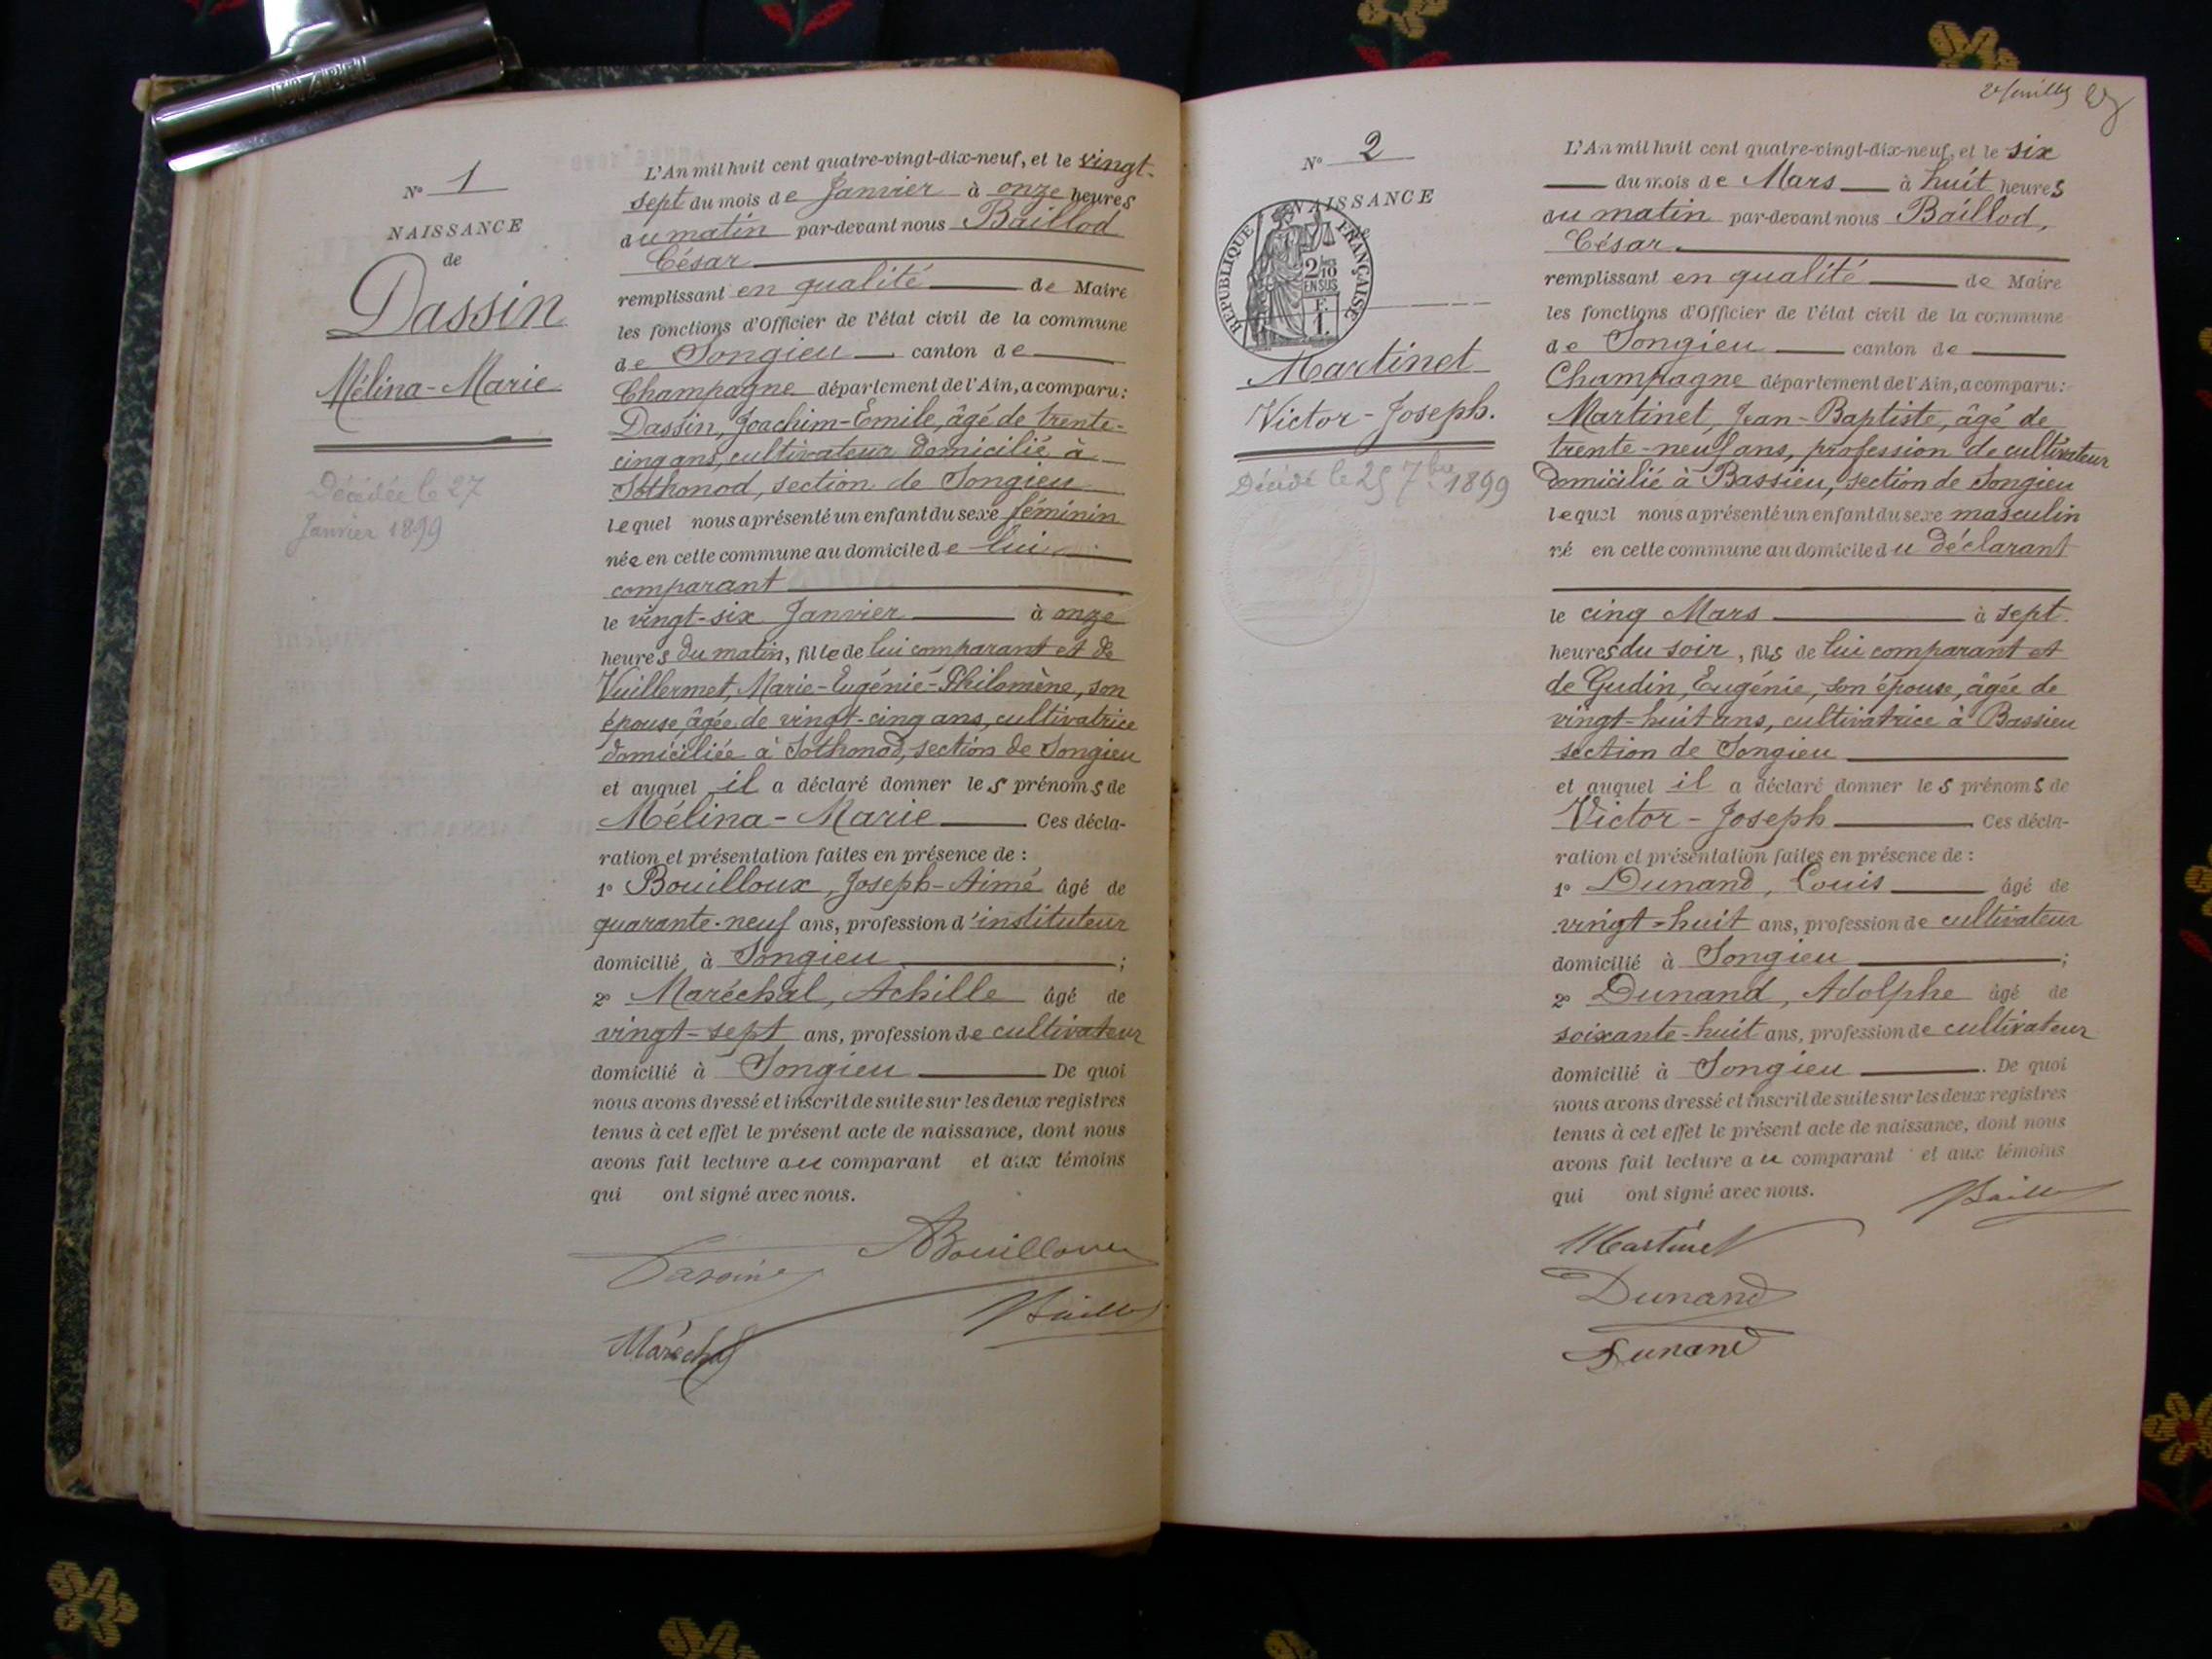 N° 1
NAISSANCE
de
Dassin
Mélina-Marie
Décédée le 27
Janvier 1899
L'An mil huit cent quatre-vingt-dix-neuf, et le vingt-
sept du mois de Janvier à onze heures
du matin par-devant nous Baillod
César
remplissant en qualité de Maire
les fonctions d'Officier de l'état civil de la commune
de Songieu canton de
Champagne département de l'Ain, a comparu:
Dassin, Joachim-Emile, âgé de trente-
cinq ans, cultivateur domicilié à
Sothonod, section de Songieu
lequel nous a présenté un enfant du sexe féminin
née en cette commune au domicile de lui
comparant
le vingt-six Janvier à onze
heures du matin, fille de lui comparant et de
Vuillermet, Marie-Eugénie-Philomène, son
épouse, âgée de vingt-cinq ans, cultivatrice
domiciliée à Sothonod, section de Songieu
et auquel il a déclaré donner les prénoms de
Mélina-Marie Ces décla-
ration et présentation faites en présence de :
1° Bouilloux, Joseph-Aimé âgé de
quarante-neuf ans, profession d'instituteur
domicilié à Songieu ;
2° Maréchal, Achille âgé de
vingt-sept ans, profession de cultivateur
domicilié à Songieu De quoi
nous avons dressé et inscrit de suite sur les deux registres
tenus à cet effet le présent acte de naissance, dont nous
avons fait lecture au comparant et aux témoins
qui ont signé avec nous.
ABouilloux
Maréchal
N° 2
NAISSANCE
REPUBLIQUE FRANÇAISE
2/10
EN SUS
F.
1.
Martinet
Victor-Joseph.
Décédé le 25 7bre 1899
L'An mil huit cent quatre-vingt-dix-neuf, et le six
du mois de Mars à huit heures
du matin par-devant nous Baillod,
César
remplissant en qualité de Maire
les fonctions d'Officier de l'état civil de la commune
de Songieu canton de
Champagne département de l'Ain, a comparu:
Martinet, Jean-Baptiste, âgé de
trente-neuf ans, profession de cultivateur
domicilié à Bassieu, section de Songieu
lequel nous a présenté un enfant du sexe masculin
né en cette commune au domicile du déclarant
le cinq Mars à sept
heures du soir, fils de lui comparant et
de Gudin, Eugénie, son épouse, âgée de
vingt-huit ans, cultivatrice à Bassieu
section de Songieu
et auquel il a déclaré donner les prénoms de
Victor-Joseph Ces décla-
ration et présentation faites en présence de :
1° Dunand, Louis âgé de
vingt-huit ans, profession de cultivateur
domicilié à Songieu ;
2° Dunand, Adolphe âgé de
soixante-huit ans, profession de cultivateur
domicilié à Songieu . De quoi
nous avons dressé et inscrit de suite sur les deux registres
tenus à cet effet le présent acte de naissance, dont nous
avons fait lecture au comparant et aux témoins
qui ont signé avec nous.
Martinet
Dunand
Dunand